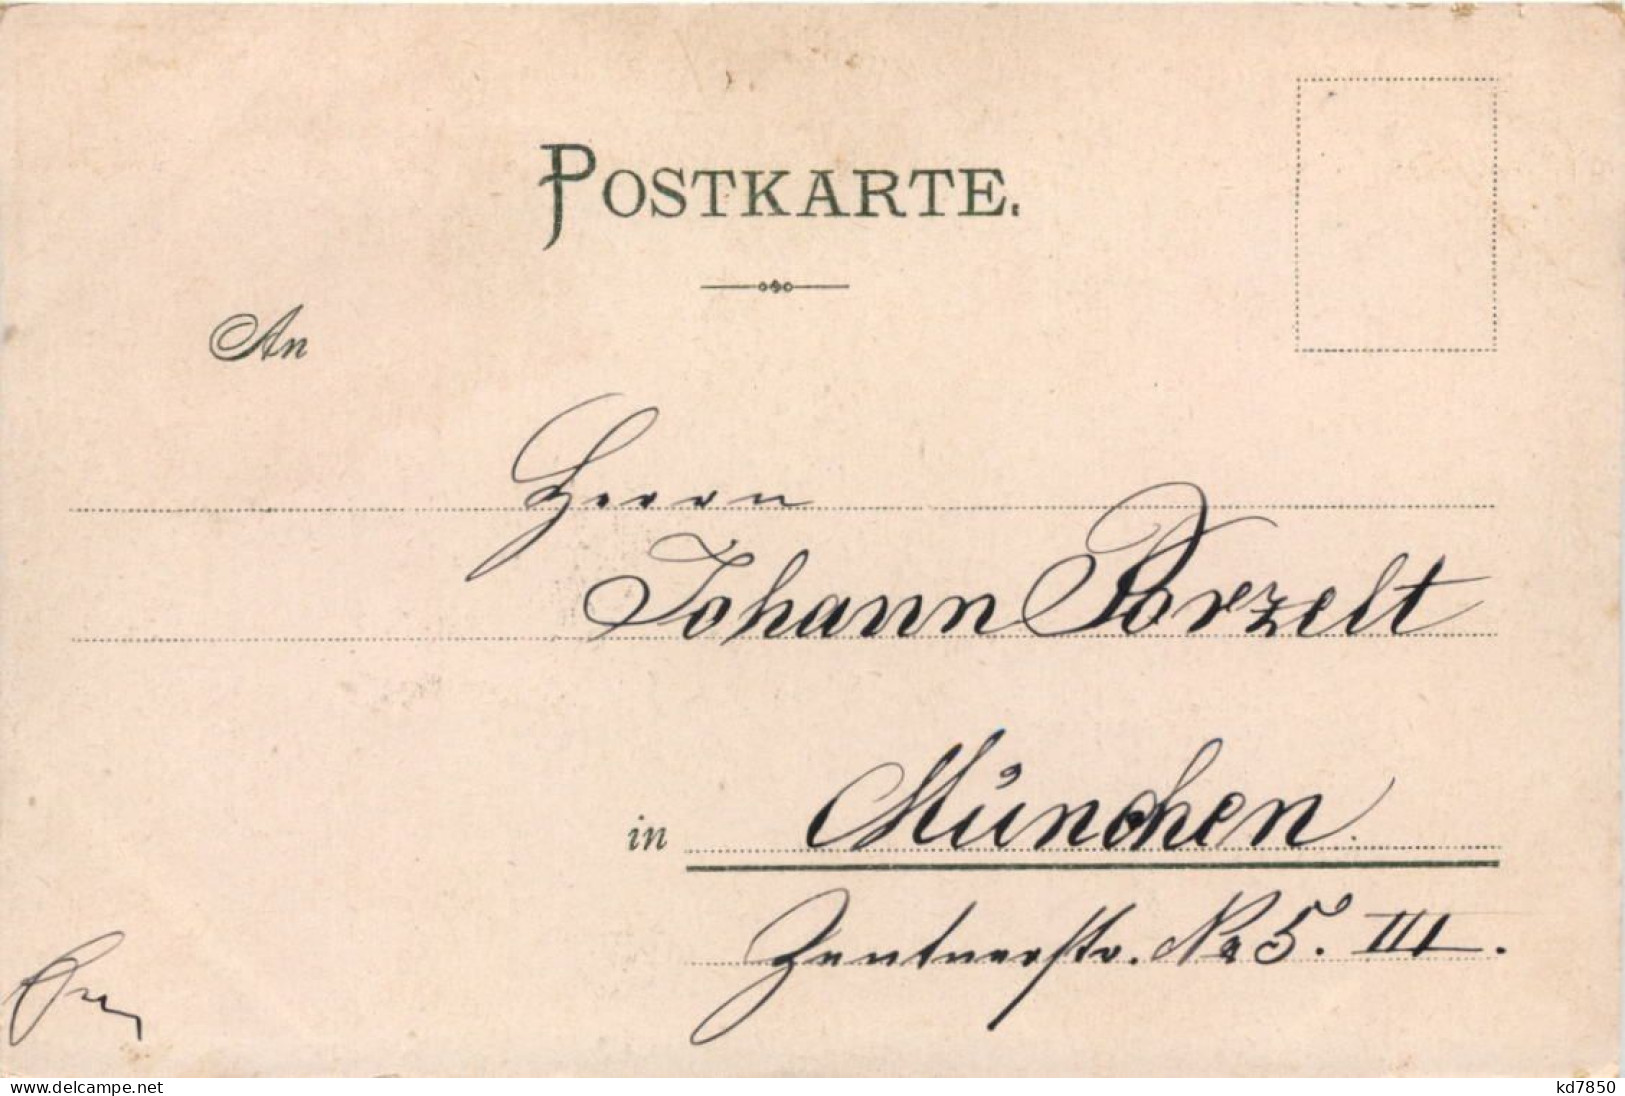 POSTKARTE.
An
Herrn
Johann Porzelt
in München.
Zentnerstr. No 5. III.
www.delcampe.net
kd7850